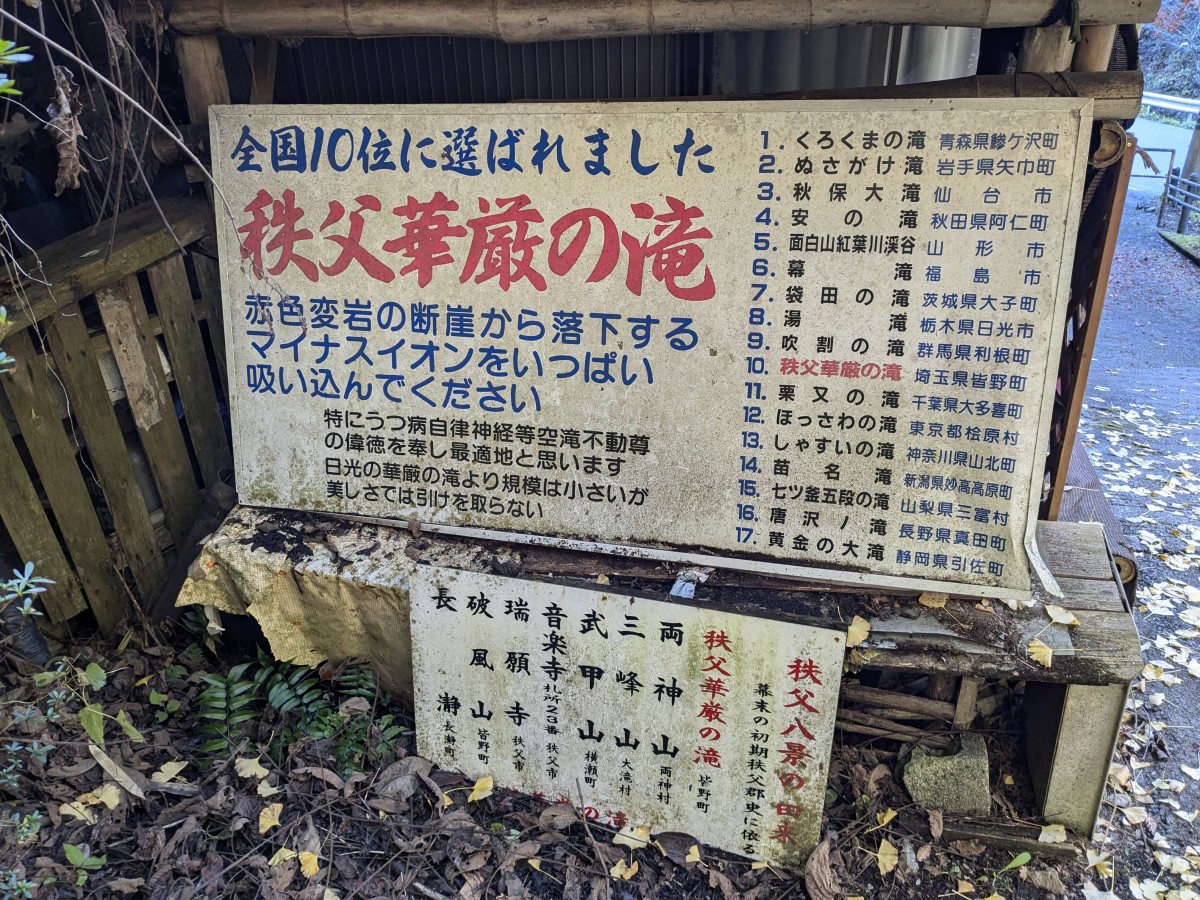 全国10位に選ばれました
秩父華厳の滝
赤色変岩の断崖から落下する
マイナスイオンをいっぱい
吸い込んでください
特にうつ病自律神経等空滝不動尊
の偉徳を奉し最適地と思います
日光の華厳の滝より規模は小さいが
美しさでは引けを取らない
1. くろくまの滝 青森県鰺ケ沢町
2. ぬさがけ滝 岩手県矢巾町
3. 秋保大滝 仙台市
4. 安の滝 秋田県阿仁町
5. 面白山紅葉川渓谷 山形市
6. 幕滝 福島市
7. 袋田の滝 茨城県大子町
8. 湯滝 栃木県日光市
9. 吹割の滝 群馬県利根町
10. 秩父華厳の滝 埼玉県皆野町
11. 栗又の滝 千葉県大多喜町
12. ほっさわの滝 東京都桧原村
13. しゃすいの滝 神奈川県山北町
14. 苗名滝 新潟県妙高高原町
15. 七ツ釜五段の滝 山梨県三富村
16. 唐沢ノ滝 長野県真田町
17. 黄金の大滝 静岡県引佐町
秩父八景の由来
幕末の初期秩父郡史に依る
秩父華厳の滝 皆野町
両神山 両神村
三峰山 大滝村
武甲山 横瀬町
音楽寺 札所23番 秩父市
瑞願寺 秩父市
破風山 皆野町
長瀞 長瀞町
の滝